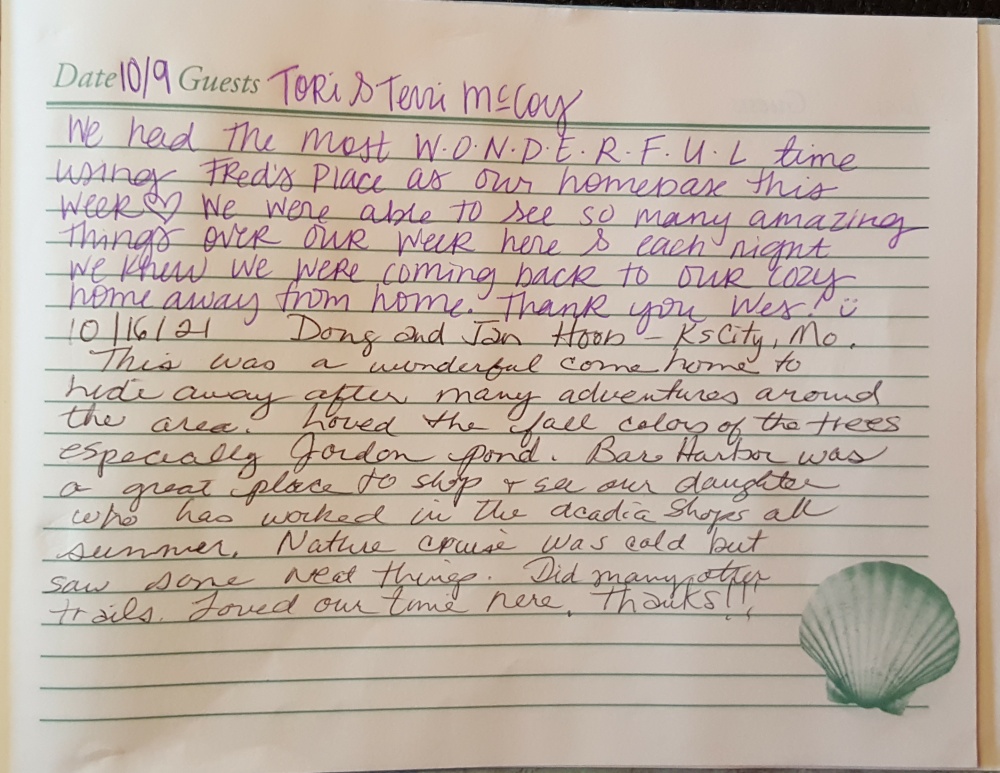 Date 10/9 Guests Tori & Terri McCoy
We had the most W.O.N.D.E.R.F.U.L time
using Fred's Place as our homebase this
week ♡ We were able to see so many amazing
things over our week here & each night
we knew we were coming back to our cozy
home away from home. Thank you Wes! ü
10/16/21 Doug and Jan Hoon - Ks City, Mo.
This was a wonderful come home to
hide away after many adventures around
the area. Loved the fall colors of the trees
especially Jordon pond. Bar Harbor was
a great place to shop + see our daughter
who has worked in the acadia shops all
summer. Nature cruise was cold but
saw some neat things. Did many other
trails. Loved our time here. Thanks!!